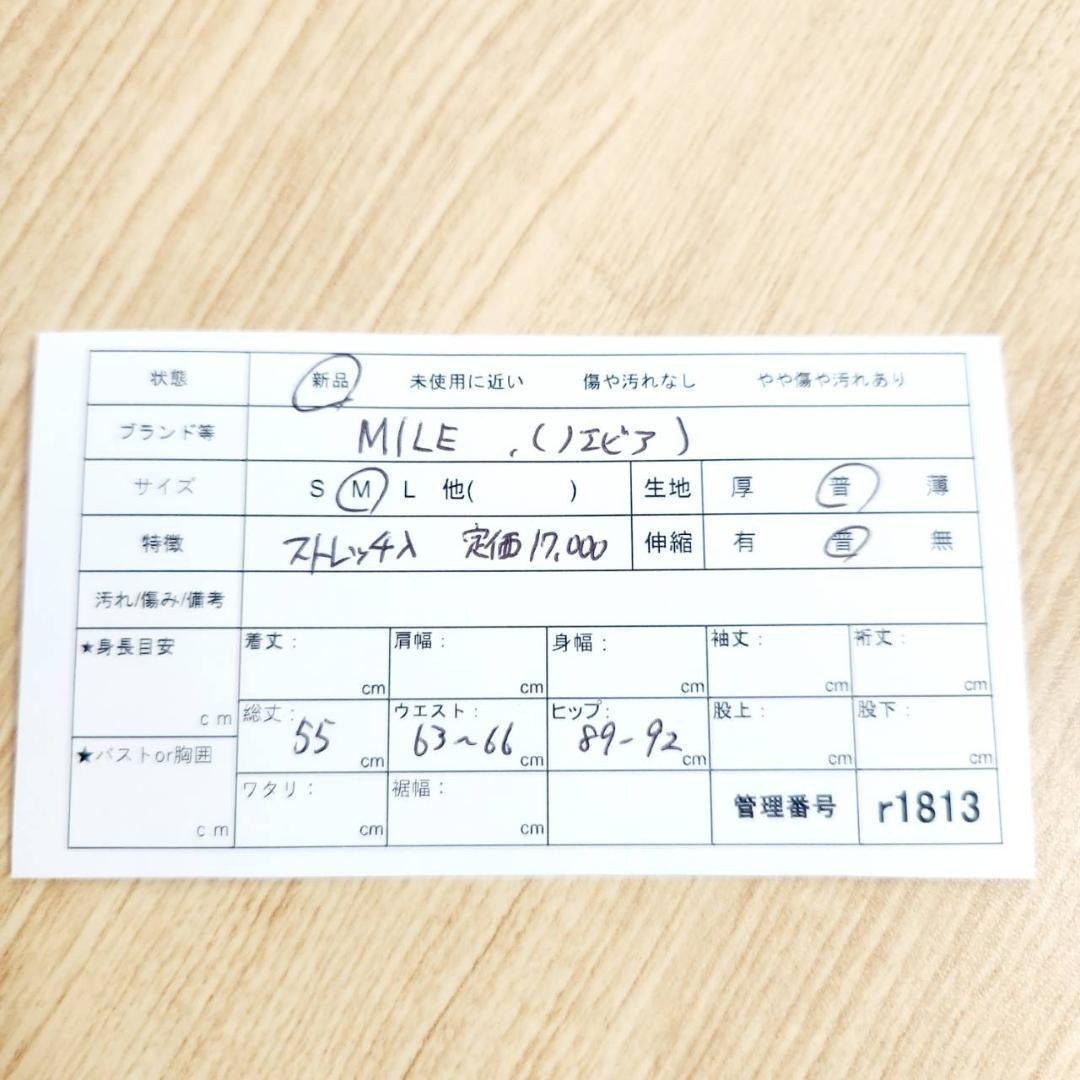 状態 新品 未使用に近い 傷や汚れなし やや傷や汚れあり
ブランド等 MILE .(ノエビア)
サイズ S M L 他( ) 生地 厚 普 薄
特徴 ストレッチ入 定価17,000 伸縮 有 普 無
汚れ/傷み/備考
★身長目安 cm
着丈: cm 肩幅: cm 身幅: cm 袖丈: cm 裄丈: cm
総丈: 55 cm ウエスト: 63~66 cm ヒップ: 89-92 cm 股上: cm 股下: cm
★バストor胸囲 cm
ワタリ: cm 裾幅: cm 管理番号 r1813